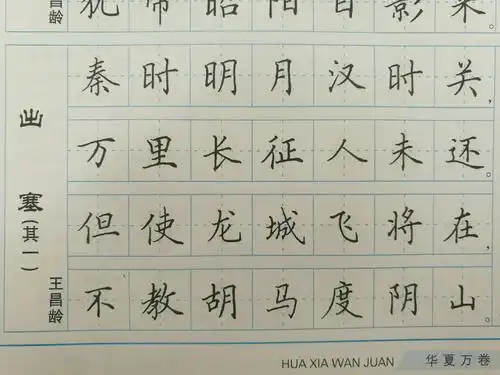 昌龄
犹带昭阳日影来。
出塞(其一)
王昌龄
秦时明月汉时关，
万里长征人未还。
但使龙城飞将在，
不教胡马度阴山。
HUA XIA WAN JUAN 华夏万卷